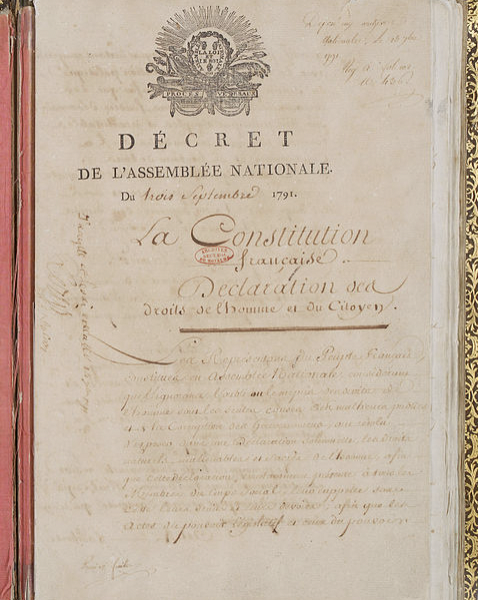 LA LOI
ET
LE ROI
PROCÈS VERBAUX
DÉCRET
DE L'ASSEMBLÉE NATIONALE.
Du trois Septembre 1791.
La Constitution
française.
Déclaration des
droits de l'homme et du Citoyen.
Les Représentans du Peuple Français
constitués en Assemblée Nationale, considérant
que l'ignorance, l'oubli ou le mépris des droits de
l'homme sont les seules causes des malheurs publics
et de la corruption des Gouvernemens, ont résolu
d'exposer dans une Déclaration solennelle, les droits
naturels, inaliénables et sacrés de l'homme, afin
que cette déclaration, constamment présente à tous les
Membres du corps social, leur rappelle sans
cesse leurs droits et leurs devoirs; afin que les
Actes du pouvoir législatif et ceux du pouvoir